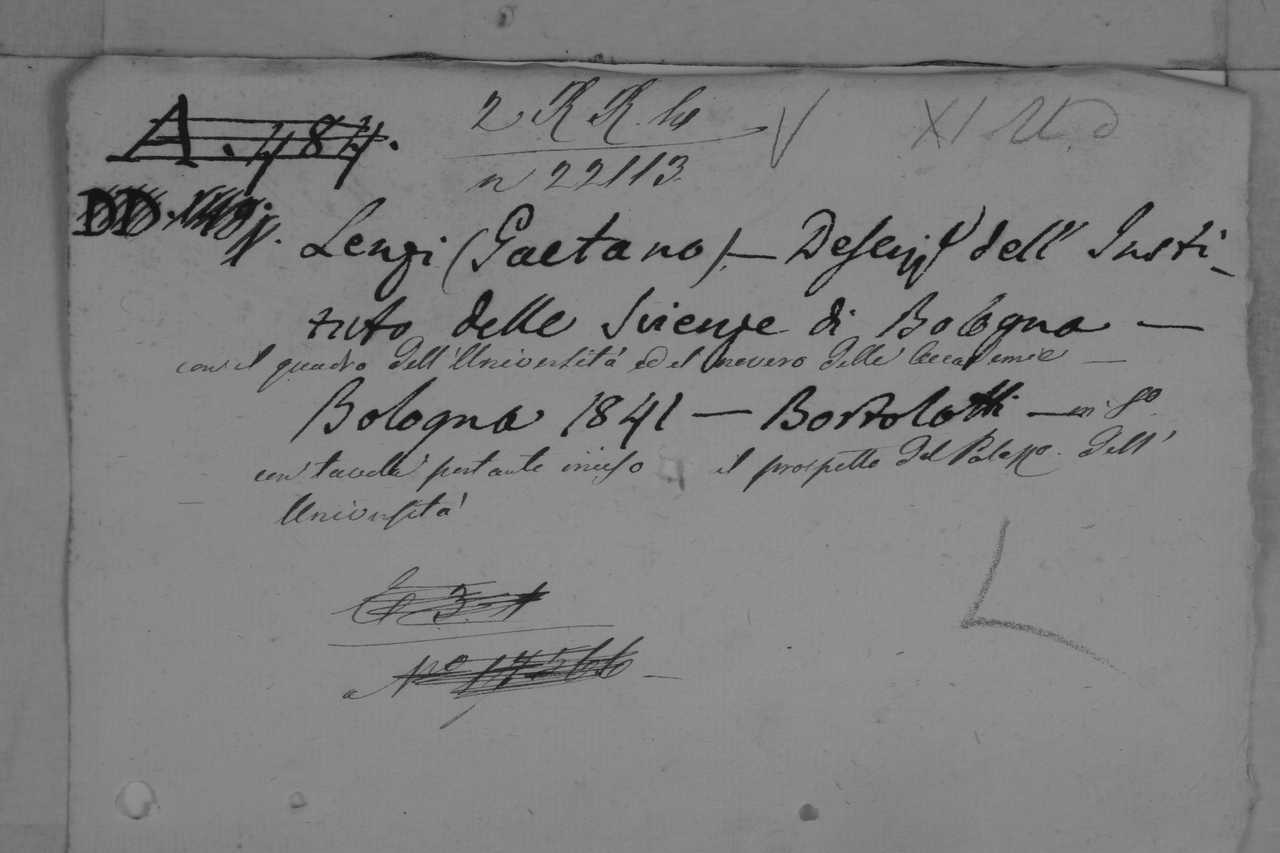 A. 484.
2 R R. he
n 22113
V
XI
DD.
Lenzi (Gaetano) — Descriz.e dell' Insti-
tuto delle Scienze di Bologna —
con il quadro dell' Università ed il novero delle Accademie —
Bologna 1841 — Bortolotti — in 8o.
con tavola portante inciso il prospetto del Palazzo dell'
Università
L
No 14566 —